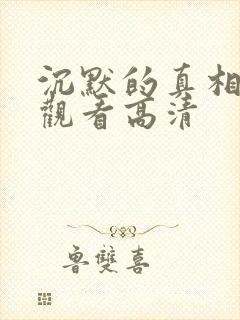 沉默的真相
觀看高清
魯雙喜